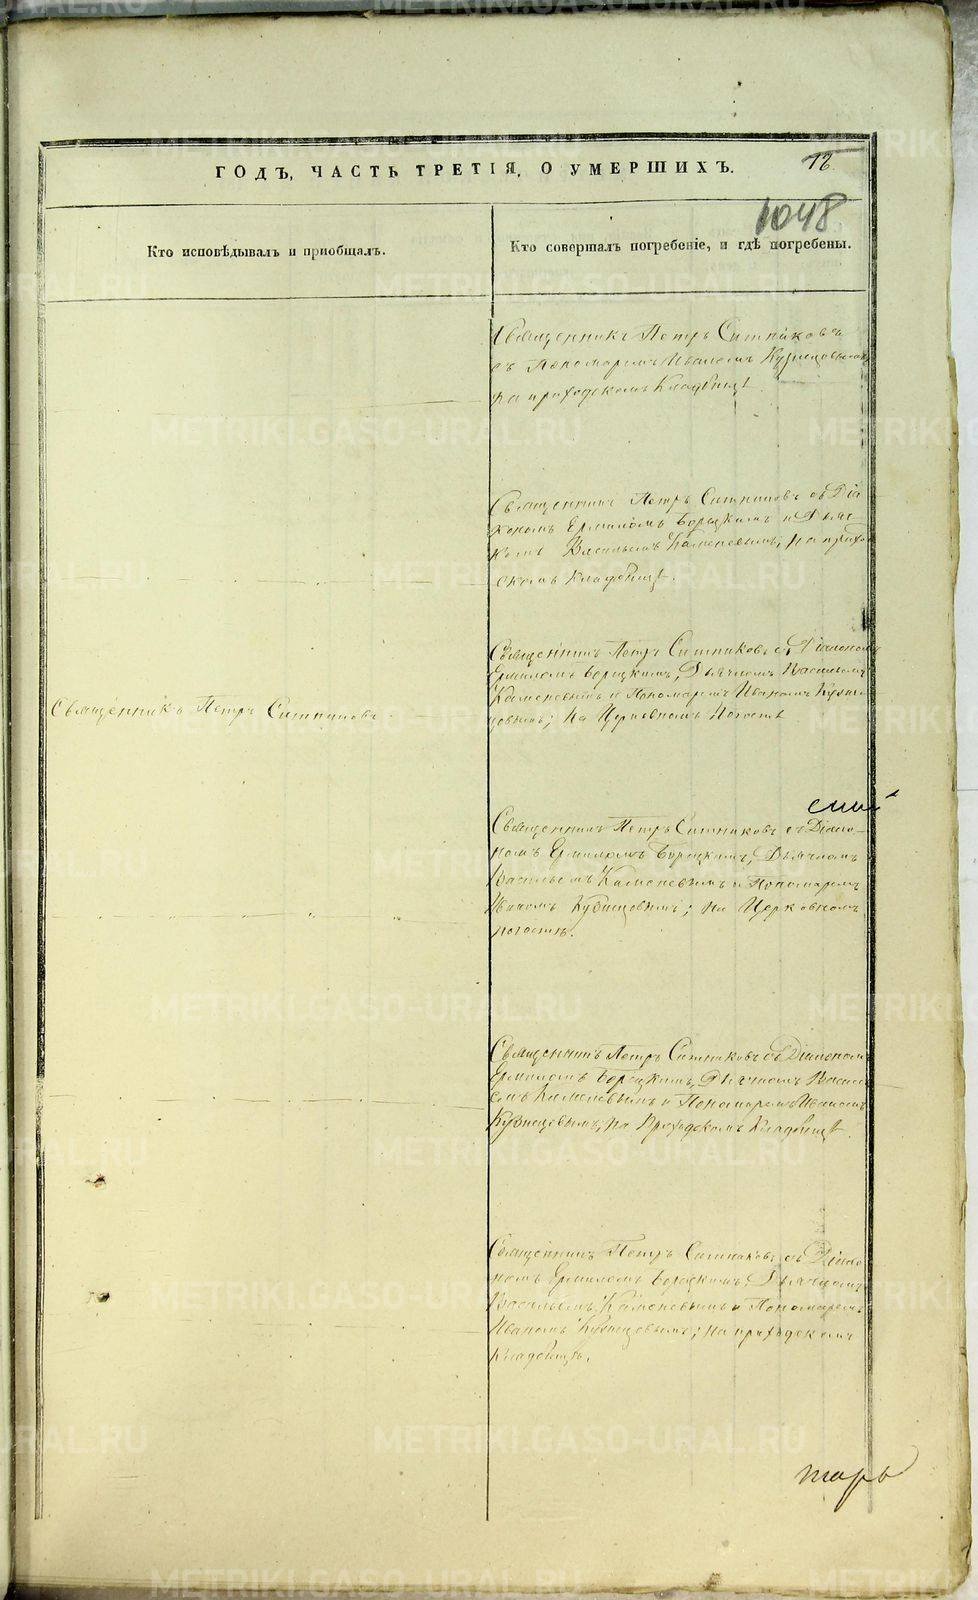 ГОДЪ, ЧАСТЬ ТРЕТІЯ, О УМЕРШИХЪ.
1048
Кто исповѣдывалъ и приобщалъ.
Кто совершалъ погребеніе, и гдѣ погребены.
Священникъ Петръ Ситниковъ
съ Пономаремъ Иваномъ Кузнецовымъ
на приходскомъ Кладбищѣ.
Священникъ Петръ Ситниковъ съ Діа
кономъ Ермиломъ Борецкимъ и Дьяч
комъ Васильемъ Каменевымъ, на приход
скомъ кладбищѣ.
Священникъ Петръ Ситниковъ съ Діакономъ
Ермиломъ Борецкимъ, Дьячкомъ Васильемъ
Каменевымъ и Пономаремъ Иваномъ Кузне
цовымъ; на Церковномъ Погостѣ
Священникъ Петръ Ситниковъ
Священникъ Петръ Ситниковъ съ Діако
номъ Ермиломъ Борецкимъ, Дьячкомъ
Васильемъ Каменевымъ и Пономаремъ
Иваномъ Кузнецовымъ; на Церковномъ
погостѣ.
Священникъ Петръ Ситниковъ съ Діакономъ
Ермиломъ Борецкимъ, Дьячкомъ Василь
емъ Каменевымъ и Пономаремъ Иваномъ
Кузнецовымъ, на Приходскомъ Кладбищѣ.
Священникъ Петръ Ситниковъ съ Діако
номъ Ермиломъ Борецкимъ, Дьячкомъ
Васильемъ Каменевымъ и Пономаремъ
Иваномъ Кузнецовымъ; на приходскомъ
кладбищѣ.
тарь
METRIKI.GASO-URAL.RU